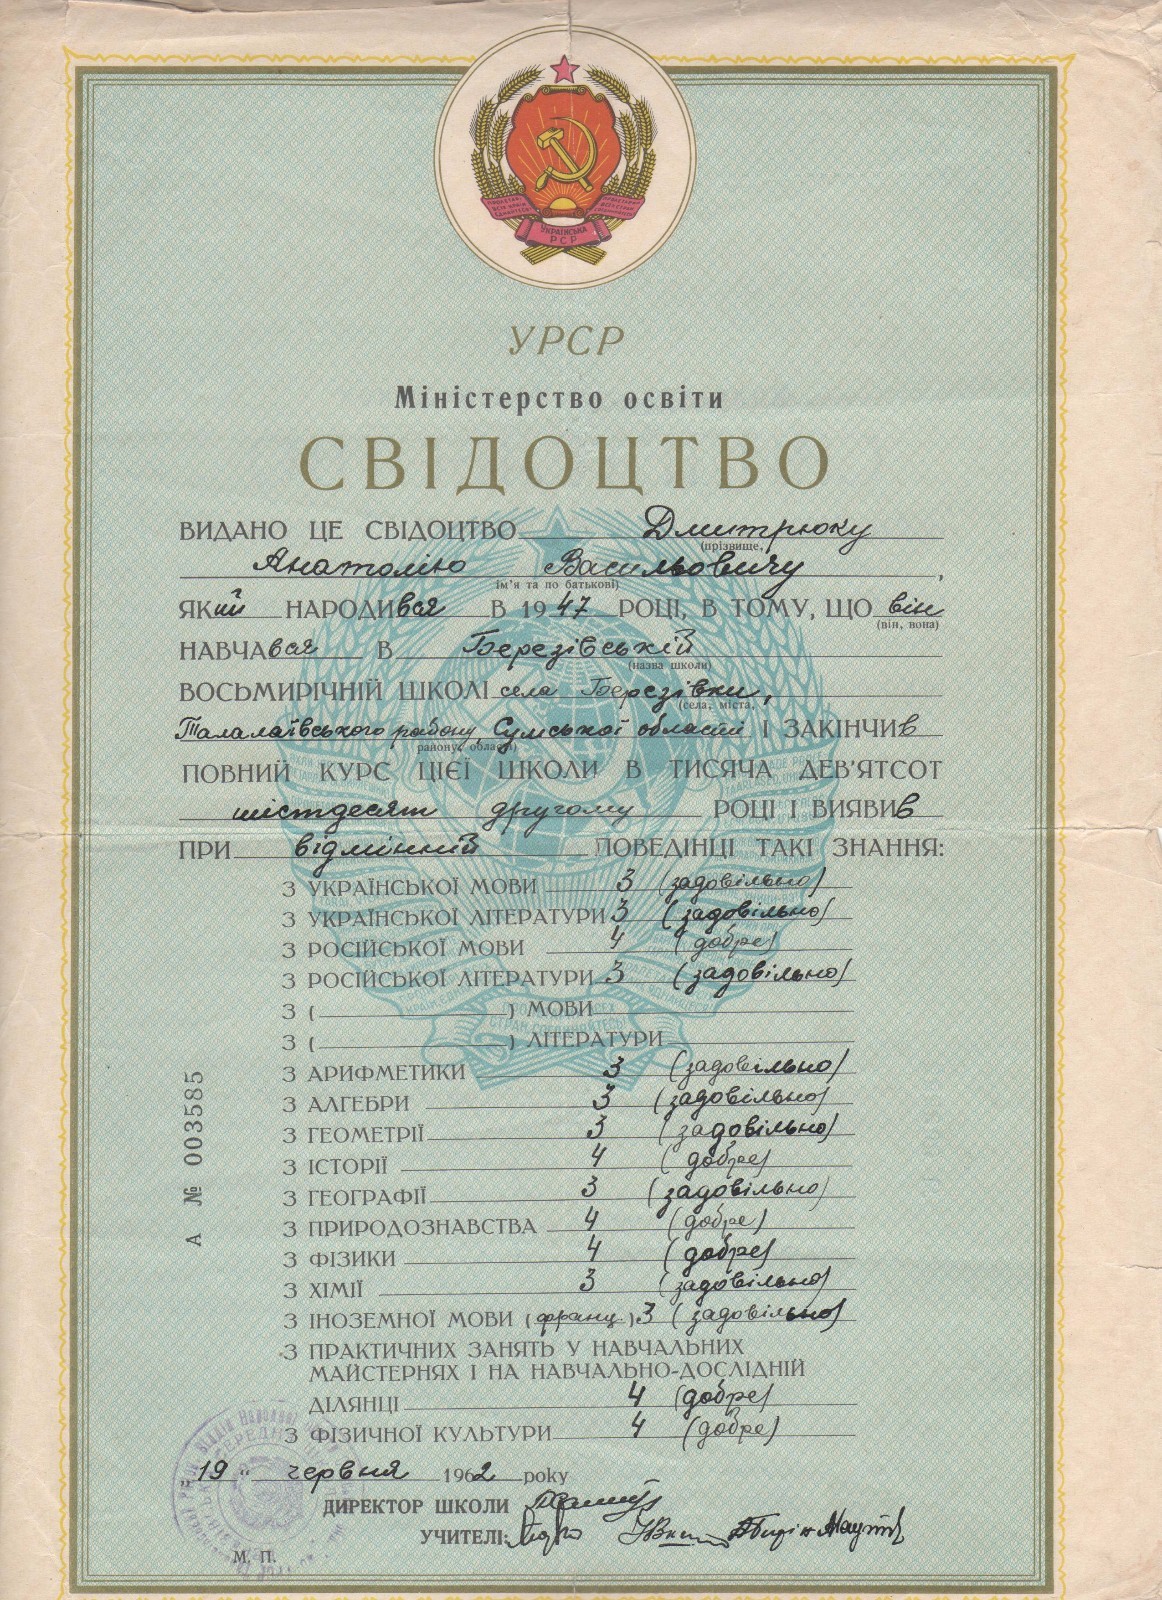 УКРАЇНСЬКА
РСР
УРСР
Міністерство освіти
СВІДОЦТВО
ВИДАНО ЦЕ СВІДОЦТВО Дмитрюку
(прізвище,
Анатолію Васильовичу,
ім'я та по батькові)
ЯКИЙ НАРОДИвся В 1947 РОЦІ, В ТОМУ, ЩО він
(він, вона)
НАВЧАвся В Березівській
(назва школи)
ВОСЬМИРІЧНІЙ ШКОЛІ села Березівки,
(села, міста,
Талалаївського району, Сумської області І ЗАКІНЧИв
району, області)
ПОВНИЙ КУРС ЦІЄЇ ШКОЛИ В ТИСЯЧА ДЕВ'ЯТСОТ
шістдесят другому РОЦІ І ВИЯВИв
ПРИ відмінній ПОВЕДІНЦІ ТАКІ ЗНАННЯ:
З УКРАЇНСЬКОЇ МОВИ 3 (задовільно)
З УКРАЇНСЬКОЇ ЛІТЕРАТУРИ 3 (задовільно)
З РОСІЙСЬКОЇ МОВИ 4 (добре)
З РОСІЙСЬКОЇ ЛІТЕРАТУРИ 3 (задовільно)
З ( ) МОВИ
З ( ) ЛІТЕРАТУРИ
З АРИФМЕТИКИ 3 (задовільно)
З АЛГЕБРИ 3 (задовільно)
З ГЕОМЕТРІЇ 3 (задовільно)
З ІСТОРІЇ 4 (добре)
З ГЕОГРАФІЇ 3 (задовільно)
З ПРИРОДОЗНАВСТВА 4 (добре)
З ФІЗИКИ 4 (добре)
З ХІМІЇ 3 (задовільно)
З ІНОЗЕМНОЇ МОВИ (франц.) 3 (задовільно)
З ПРАКТИЧНИХ ЗАНЯТЬ У НАВЧАЛЬНИХ
МАЙСТЕРНЯХ І НА НАВЧАЛЬНО-ДОСЛІДНІЙ
ДІЛЯНЦІ 4 (добре)
З ФІЗИЧНОЇ КУЛЬТУРИ 4 (добре)
„19" червня 1962 року
ДИРЕКТОР ШКОЛИ
УЧИТЕЛІ:
М. П.
А № 003585